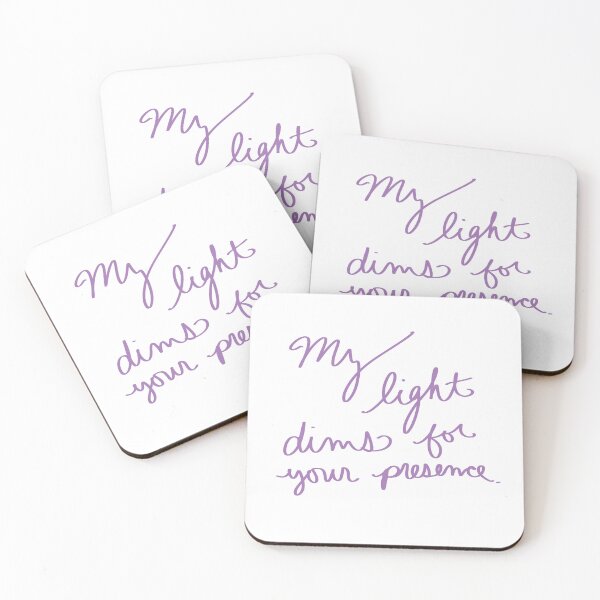 My
light
for
My
light
dims for
your presence.
My
light
dims for
your
My
light
dims for
your presence.